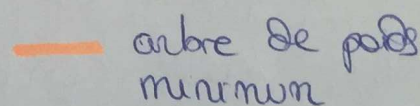 arbre de poids
minimum